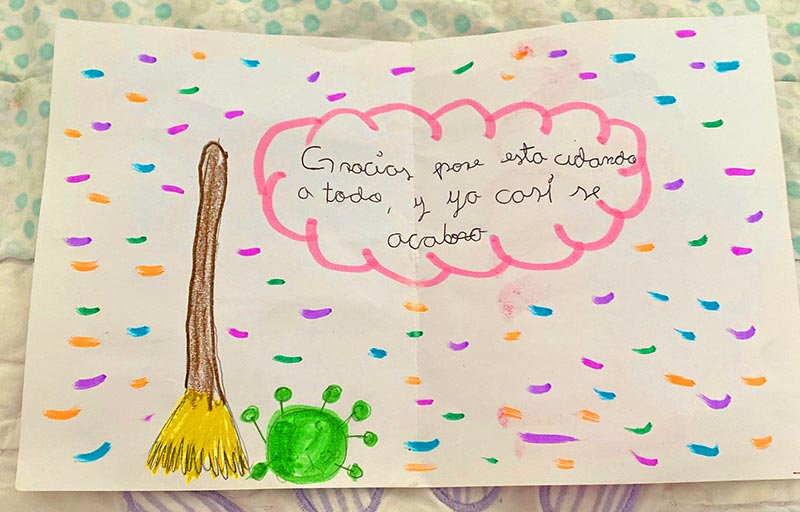 Gracias pore esta cudando
a todo, y ya casí se
acabaro